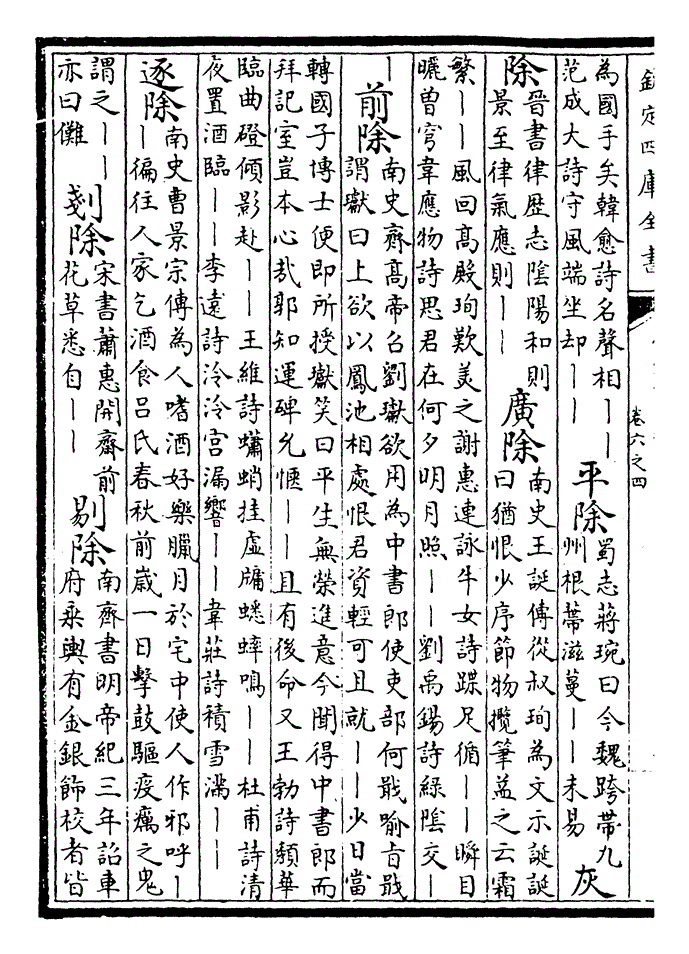 欽定四庫全書
卷六之四
為國手矣韓愈詩名聲相——
范成大詩守風端坐却——
平除
蜀志蔣琬曰今魏跨帶九
州根蔕滋蔓——未易
灰
除
晉書律歴志陰陽和則
景至律氣應則——
廣除
南史王誕傳從叔珣為文示誕誕
曰猶恨少序節物攬筆益之云霜
繁——風回髙殿珣歎美之謝惠連詠牛女詩蹀足循——瞬目
曬曽穹韋應物詩思君在何夕明月照——劉禹錫詩緑陰交—
—
前除
南史齊髙帝召劉瓛欲用為中書郎使吏部何戢喻旨戢
謂瓛曰上欲以鳳池相處恨君資輕可且就——少日當
轉國子博士便即所授瓛笑曰平生無榮進意今聞得中書郎而
拜記室豈本心哉郭知運碑允愜——且有後命又王勃詩類華
臨曲磴傾影赴——王維詩蠨蛸挂虚牖蟋蟀鳴——杜甫詩清
夜置酒臨——李遠詩泠泠宫漏響——韋莊詩積雪滿——
逐除
南史曹景宗傳為人嗜酒好樂臘月於宅中使人作邪呼—
—徧往人家乞酒食吕氏春秋前嵗一日擊鼓驅疫癘之鬼
謂之——
亦曰儺
剗除
宋書蕭惠開齋前
花草悉自——
剔除
南齊書明帝紀三年詔車
府乗輿有金銀飾校者皆